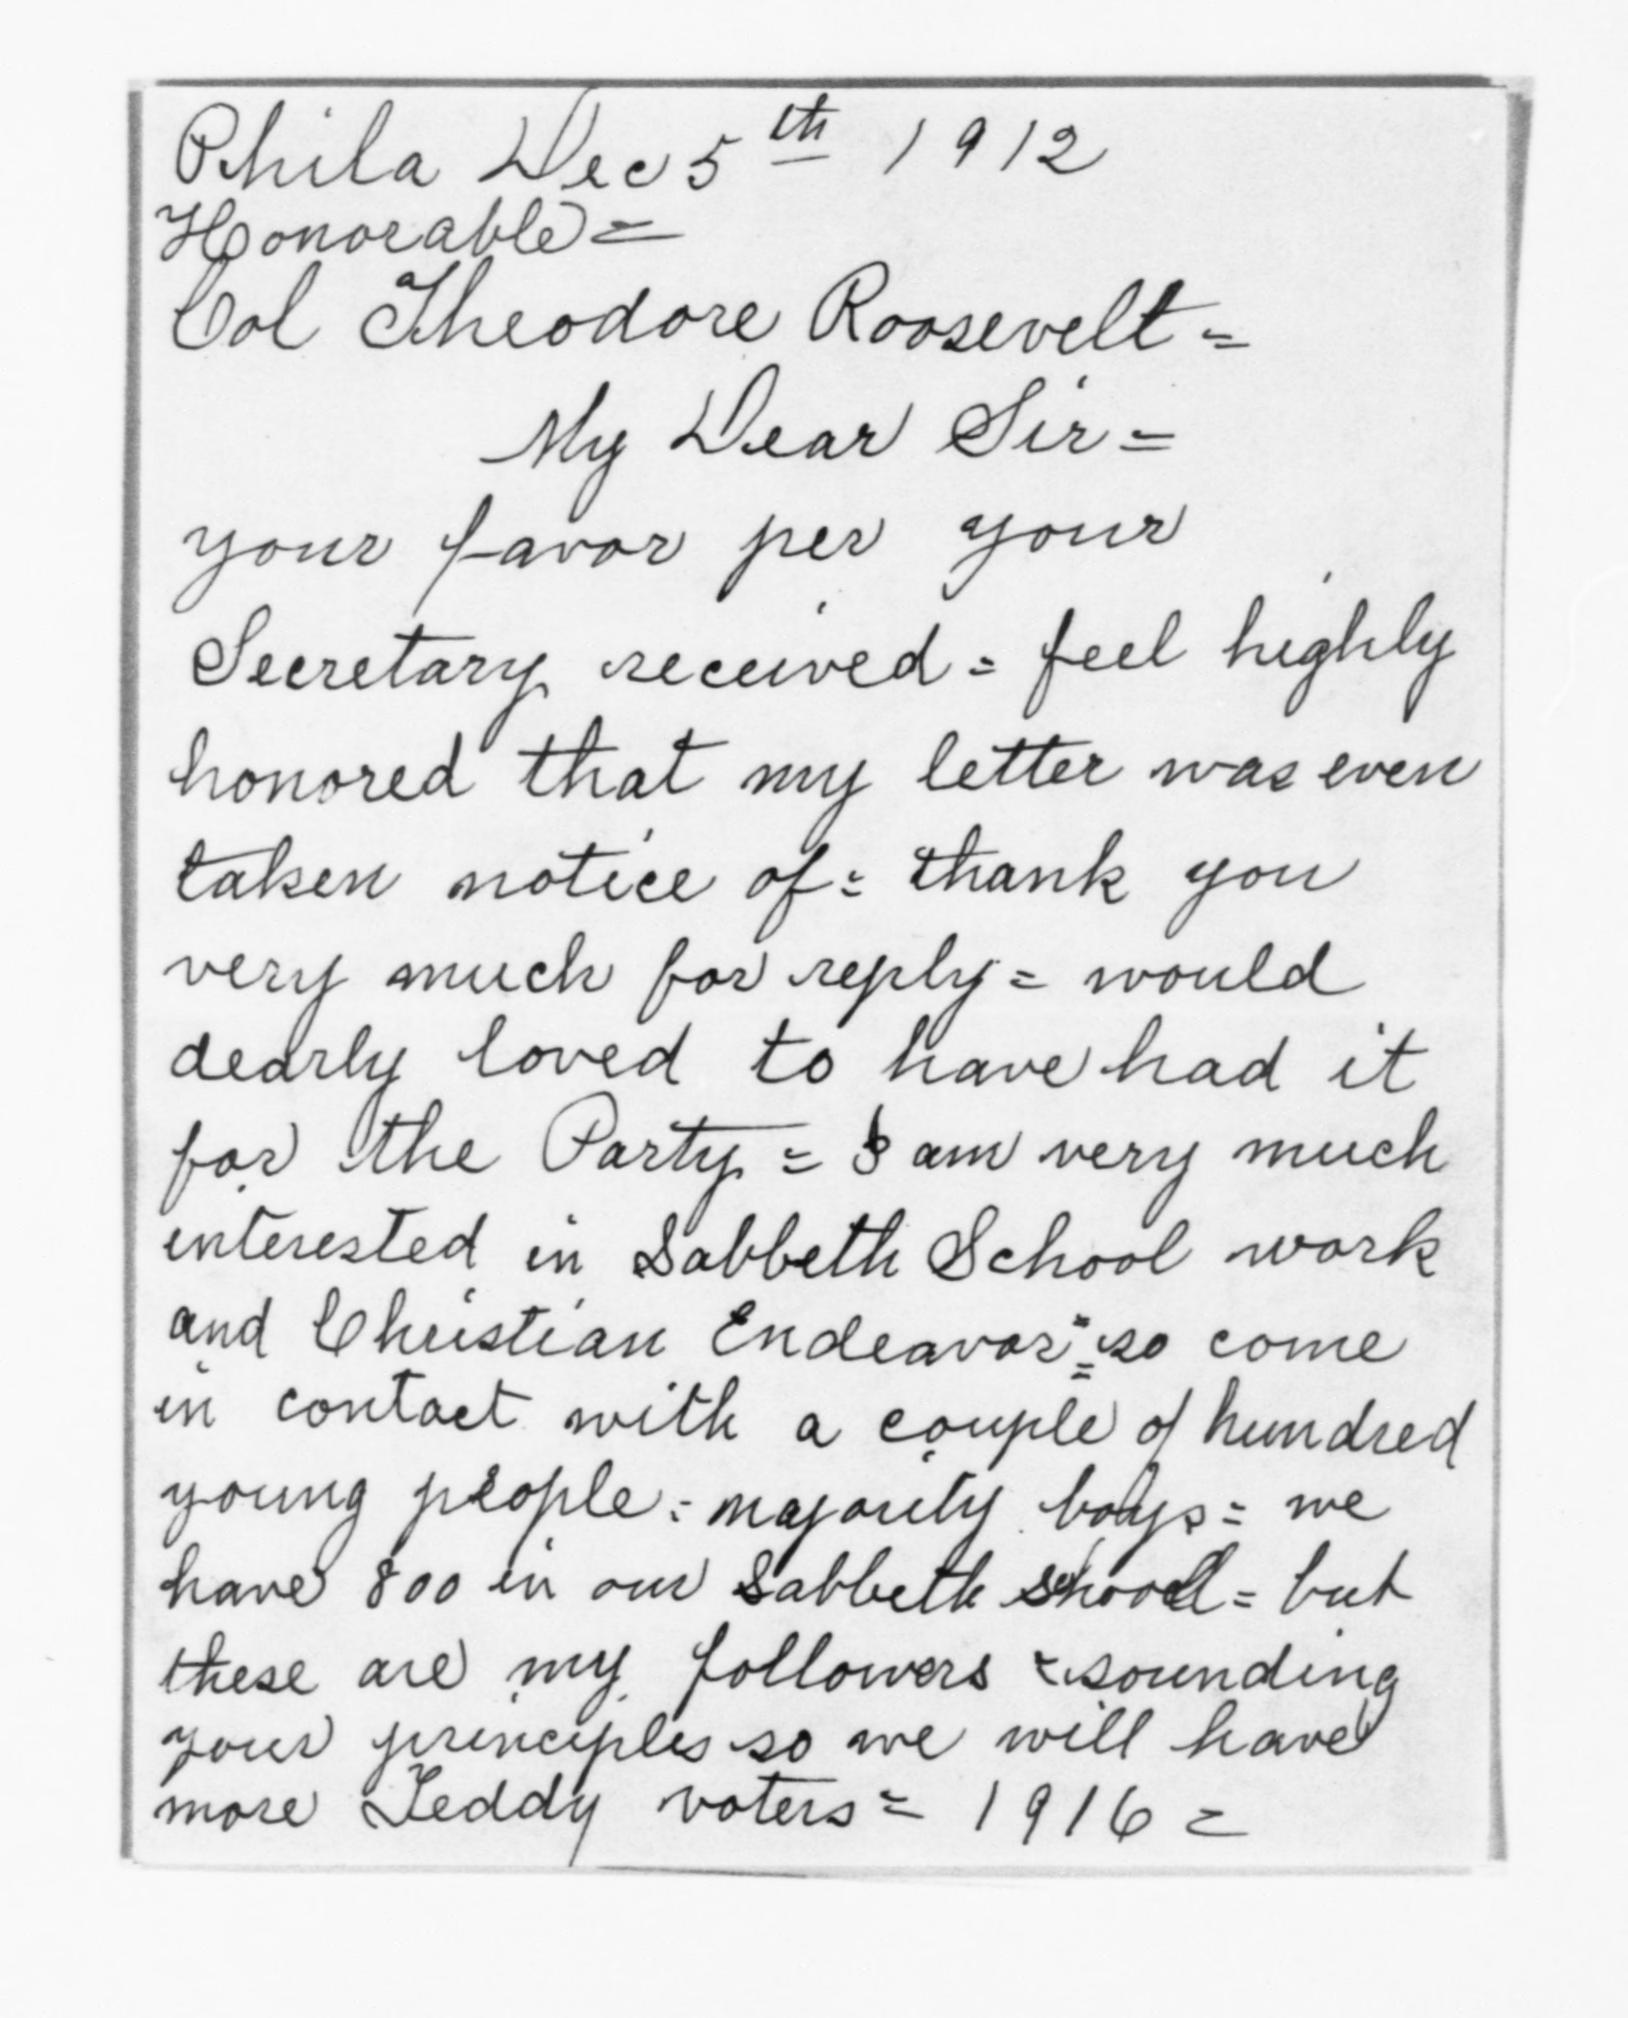 Phila Dec 5th 1912
Honorable =
Col Theodore Roosevelt =
My Dear Sir =
your favor per your
Secretary received = feel highly
honored that my letter was even
taken notice of = thank you
very much for reply = would
dearly loved to have had it
for the Party = I am very much
interested in Sabbeth School work
and Christian Endeavor = so come
in contact with a couple of hundred
young people = majority boys = we
have 800 in our Sabbeth School = but
these are my followers = sounding
your principles so we will have
more Teddy voters = 1916 =